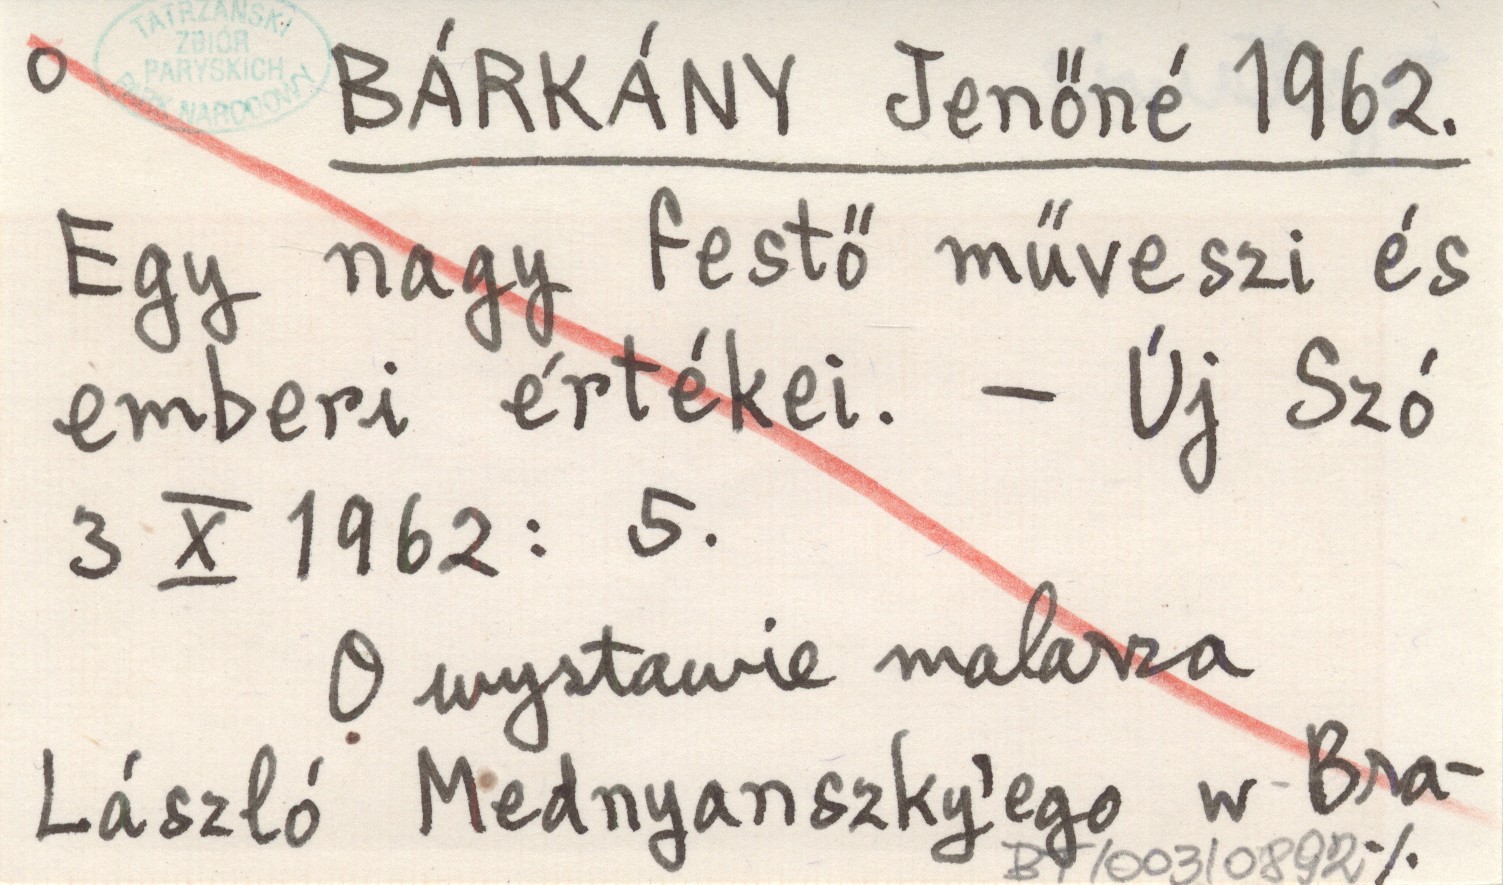 TATRZAŃSKI
ZBIÓR
PARYSKICH
PARK NARODOWY
o
BÁRKÁNY Jenőné 1962.
Egy nagy festő műveszi és
emberi értékei. — Új Szó
3 X 1962: 5.
O wystawie malarza
László Mednyanszky'ego w Bra-
BT/003/0892 ·/.